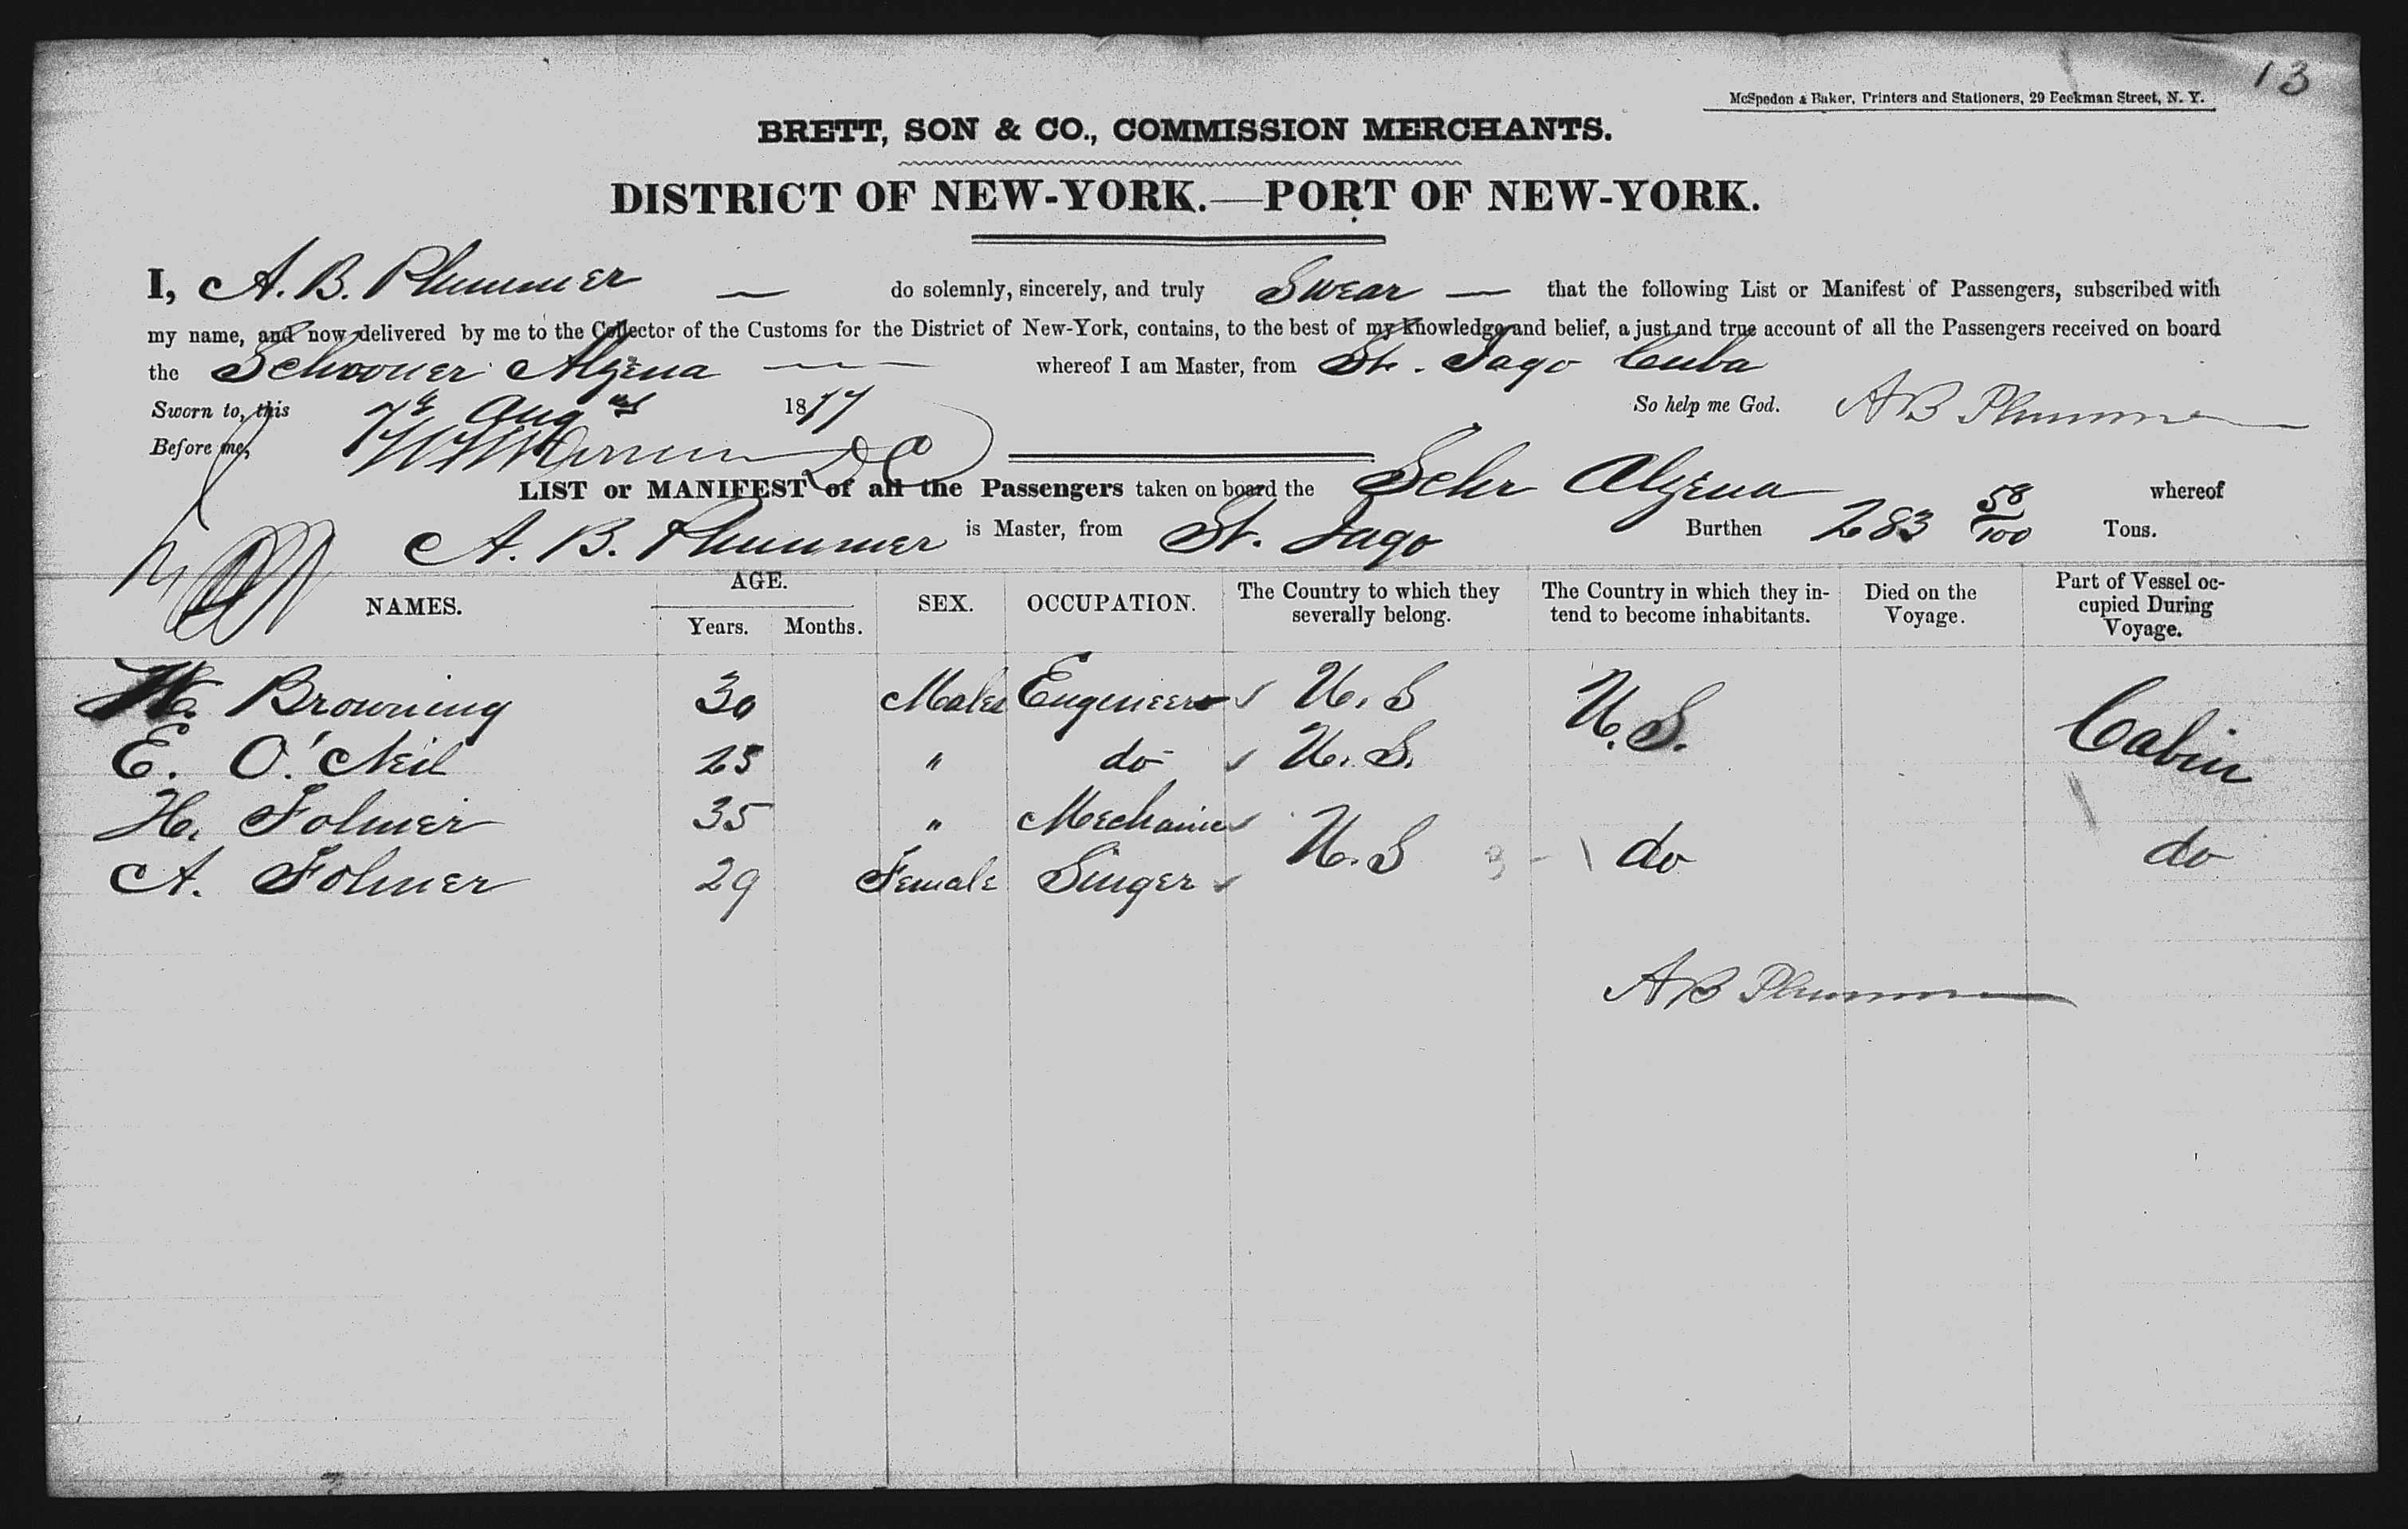 13
McSpedon & Baker, Printers and Stationers, 29 Beekman Street, N. Y.
BRETT, SON & CO., COMMISSION MERCHANTS.
DISTRICT OF NEW-YORK.—PORT OF NEW-YORK.
I, A. B. Plummer — do solemnly, sincerely, and truly Swear — that the following List or Manifest of Passengers, subscribed with
my name, and now delivered by me to the Collector of the Customs for the District of New-York, contains, to the best of my knowledge and belief, a just and true account of all the Passengers received on board
the Schooner Algena — whereof I am Master, from St. Jago Cuba
Sworn to, this 7th Augst 1877 So help me God. A B Plummer
Before me, D C
LIST or MANIFEST of all the Passengers taken on board the Schr Algena whereof
A. B. Plummer is Master, from St. Jago Burthen 283 58/100 Tons.
NAMES. AGE. Years. Months. SEX. OCCUPATION. The Country to which they severally belong. The Country in which they intend to become inhabitants. Died on the Voyage. Part of Vessel occupied During Voyage.
Browning 30 Males Engineers U. S U. S. Cabin
E. O'Neil 25 " do U. S.
H. Folmer 35 " Mechanic U. S do do
A. Folmer 29 Female Singer
A B Plummer